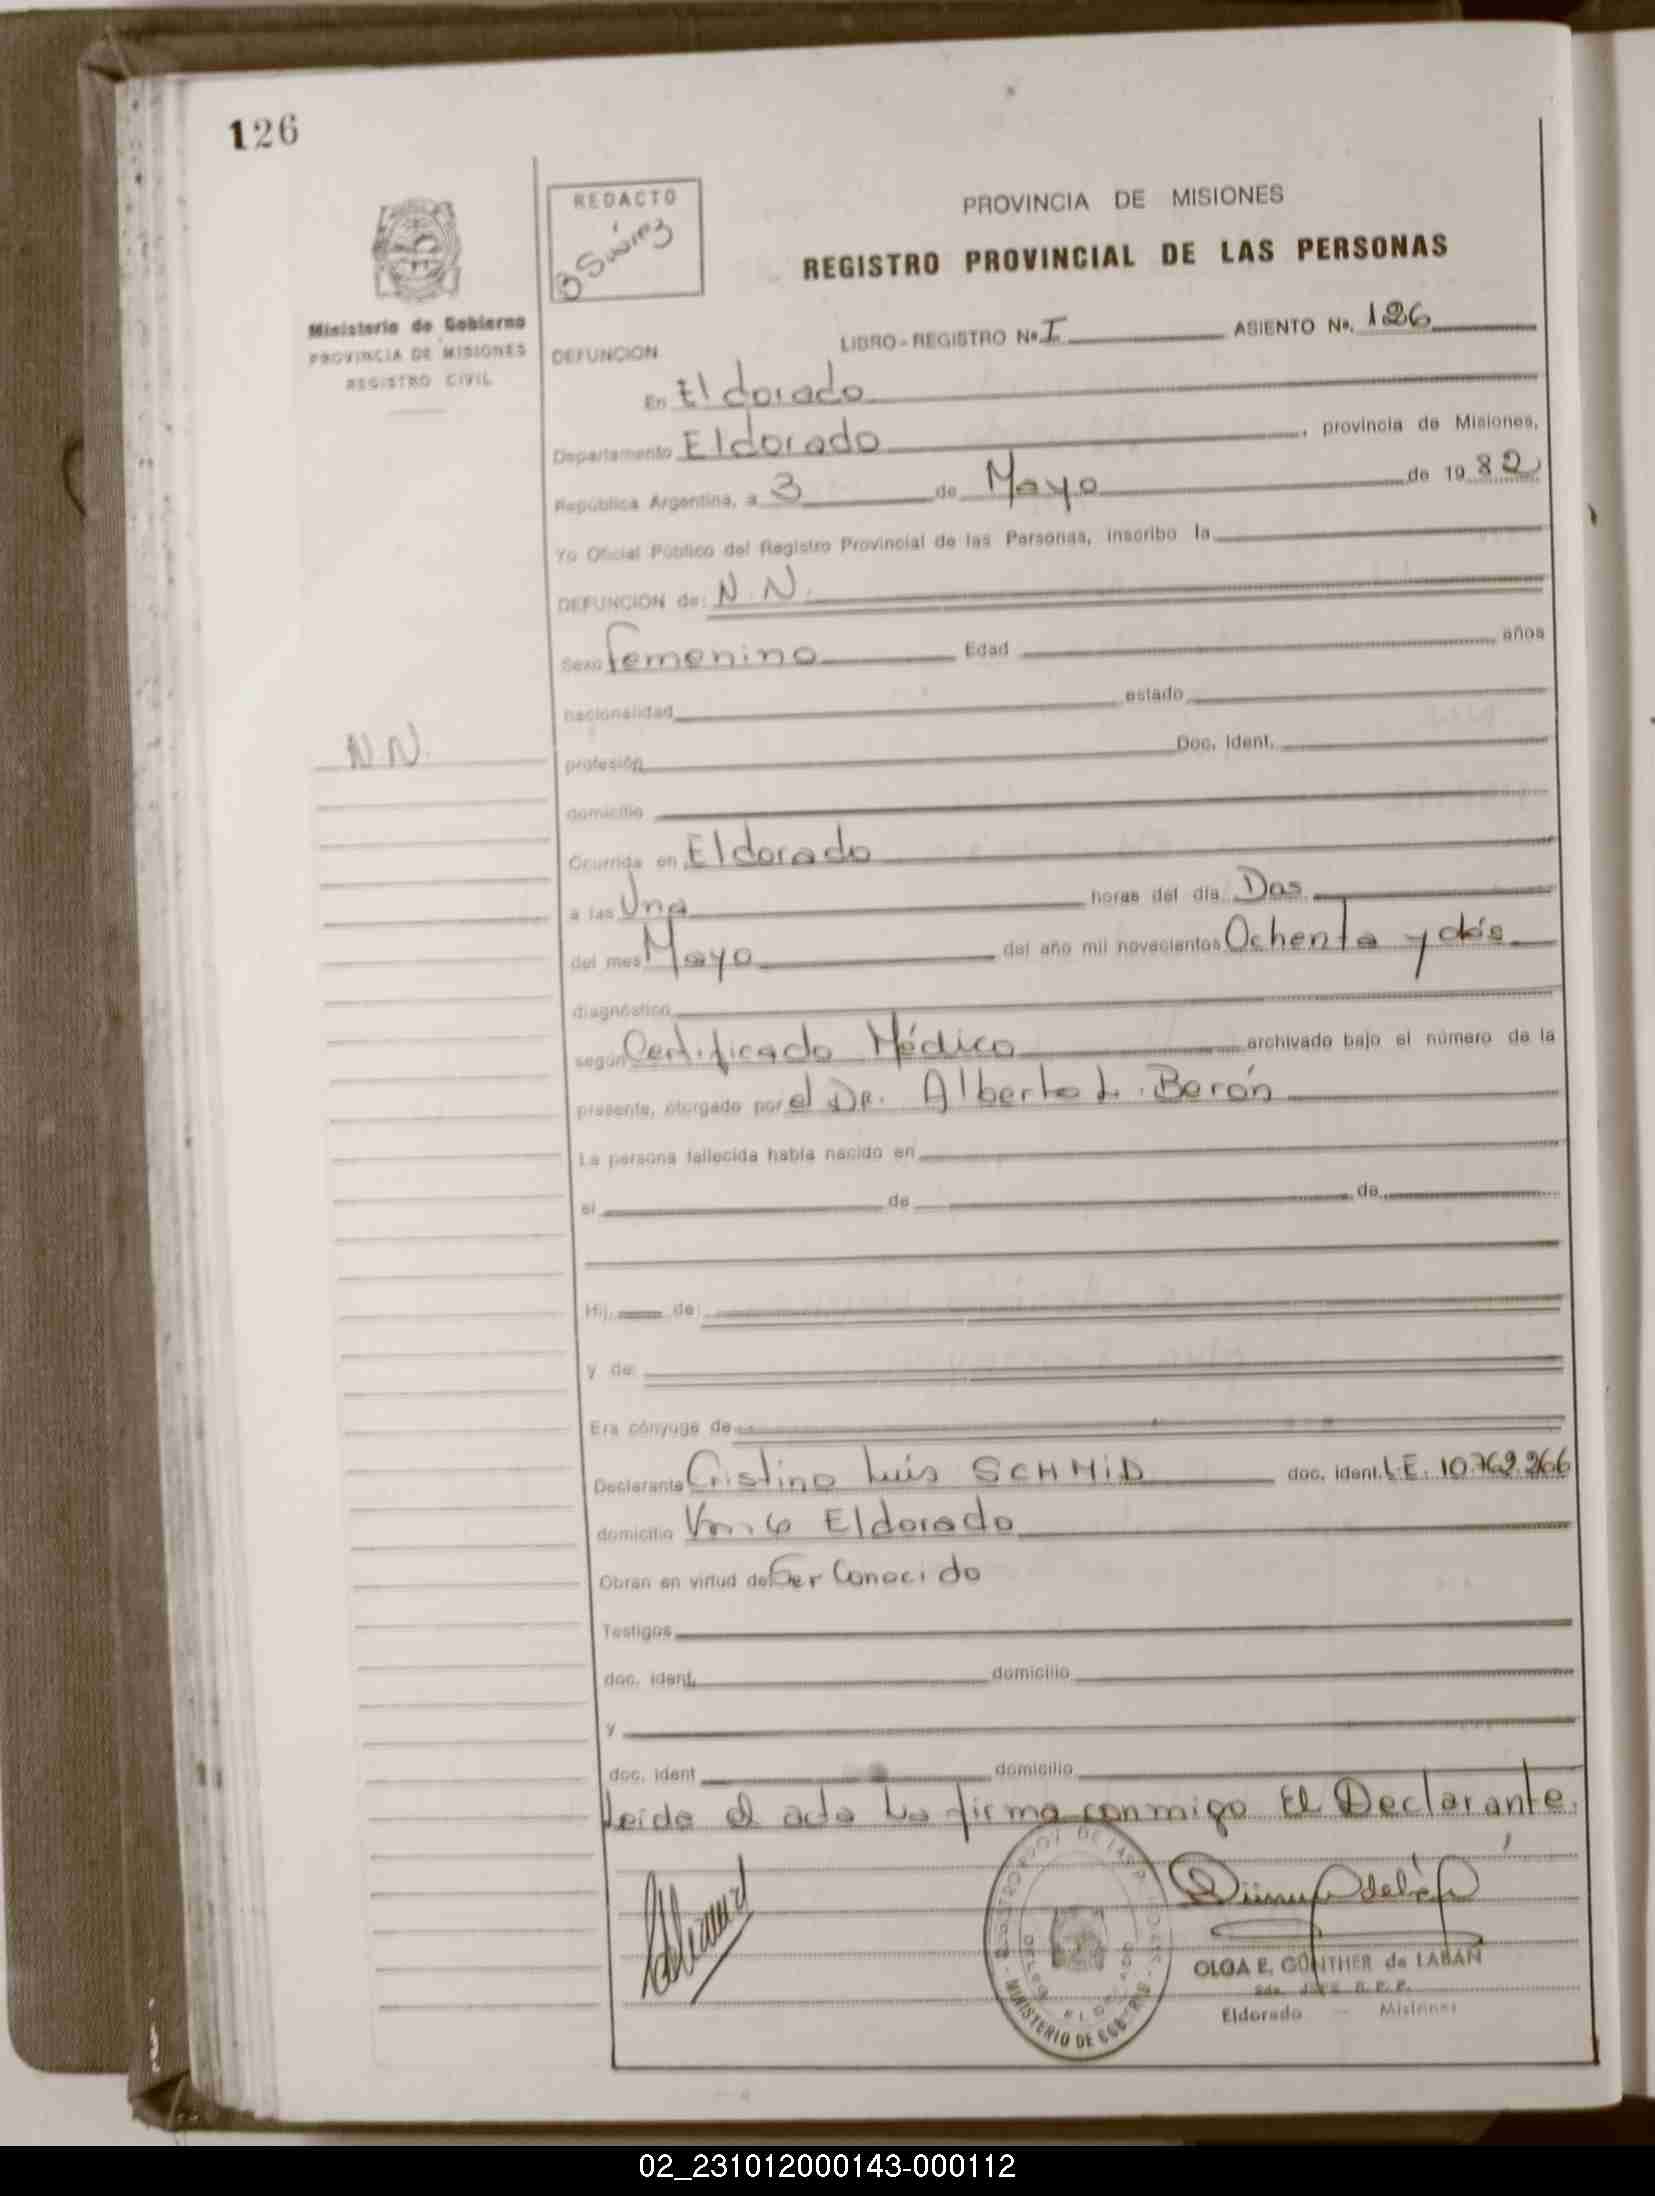 126
REDACTO
PROVINCIA DE MISIONES
REGISTRO PROVINCIAL DE LAS PERSONAS
Ministerio de Gobierno
PROVINCIA DE MISIONES
REGISTRO CIVIL
DEFUNCION
LIBRO - REGISTRO Nº I ASIENTO Nº. 126
En Eldorado
Departamento Eldorado, provincia de Misiones,
República Argentina, a 3 de Mayo de 1982
Yo Oficial Público del Registro Provincial de las Personas, inscribo la
DEFUNCION de: N.N.
Sexo femenino Edad años
nacionalidad estado
N.N.
profesión Doc. Ident.
domicilio
Ocurrida en Eldorado
a las Una horas del día Dos
del mes Mayo del año mil novecientos Ochenta y dós
diagnóstico
según Certificado Médico archivado bajo el número de la
presente, otorgado por el DR. Alberto L. Berón
La persona fallecida había nacido en
el de de
Hij de:
y de:
Era cónyuge de
Declarante Cristino Luis SCHMID doc. ident. L.E. 10.762.266
domicilio Km. Eldorado
Obran en virtud de Ser Conocido
Testigos
doc. ident. domicilio
y
doc. ident domicilio
Leida el acta La firma conmigo El Declarante.
MINISTERIO DE GOBIERNO
ELDORADO
OLGA E. GÜNTHER de LABAN
Eldorado — Misiones
02_231012000143-000112